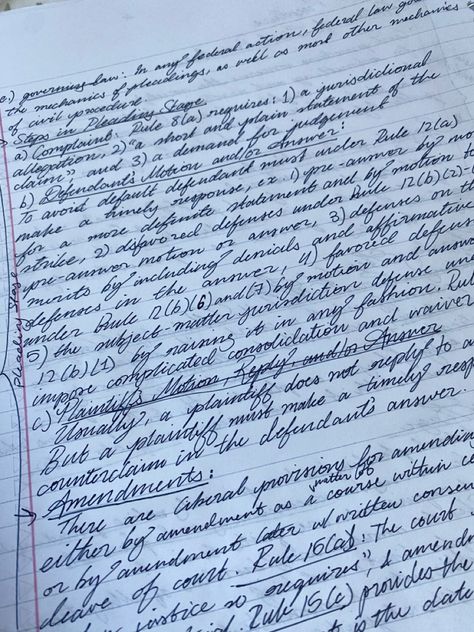 e.) governing law: In any federal action, federal law gov
the mechanics of pleadings, as well as most other mechanics
of civil procedure
Steps in Pleading Stage
a) Complaint: Rule 8(a) requires: 1) a jurisdictional
allegation, 2) "a short and plain statement of the
claim", and 3) a demand for judgement
b) Defendant's Motion and/or Answer:
To avoid default defendand must under Rule 12(a)
make a timely response, ex 1) pre-answer by mo
for a more definite statement and by motion to
strike, 2) disfavored defenses under Rule 12(b)(2)-
pre-answer motion or answer, 3) defenses on t
merits by including denials and affirmative
defenses in the answer, 4) favored defens
under Rule 12(b)(6) and (7) by motion and answ
5) the subject-matter jurisdiction defense und
12(b)(1) by raising it in any fashion. Rul
impose complicated consolidation and waiver
c) Plaintiff's Motion, Reply and/or Answer
Usually, a plaintiff does not reply to a
But a plaintiff must make a timely resp
counterclaim in the defendant's answer.
Pleading Stage
Amendments:
There are liberal provisions for amendin
either by amendment as a matter of course within ce
or by amendment later w/ written consen
leave of court. Rule 15(a): The court
justice so requires", & amend
Rule 15(c) provides the
is the date